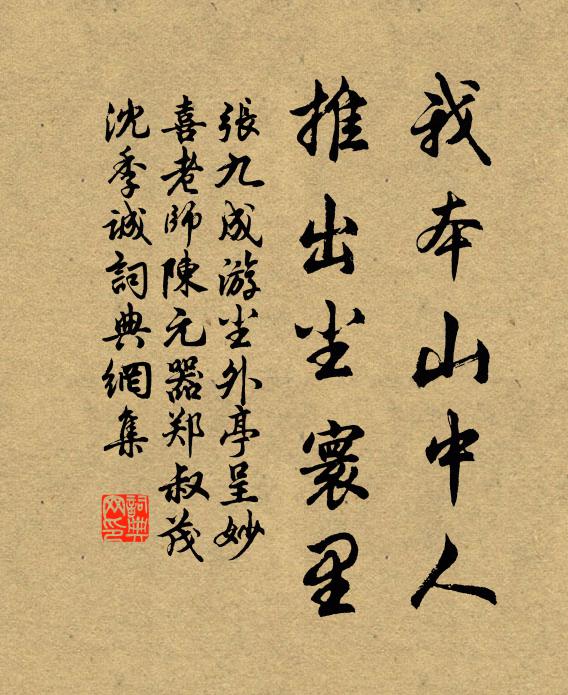 我本山中人
推出尘寰里
張九成游尘外亭呈妙
喜老師陳元器郑叔茂
沈季誠詞典網集
詞典
网印